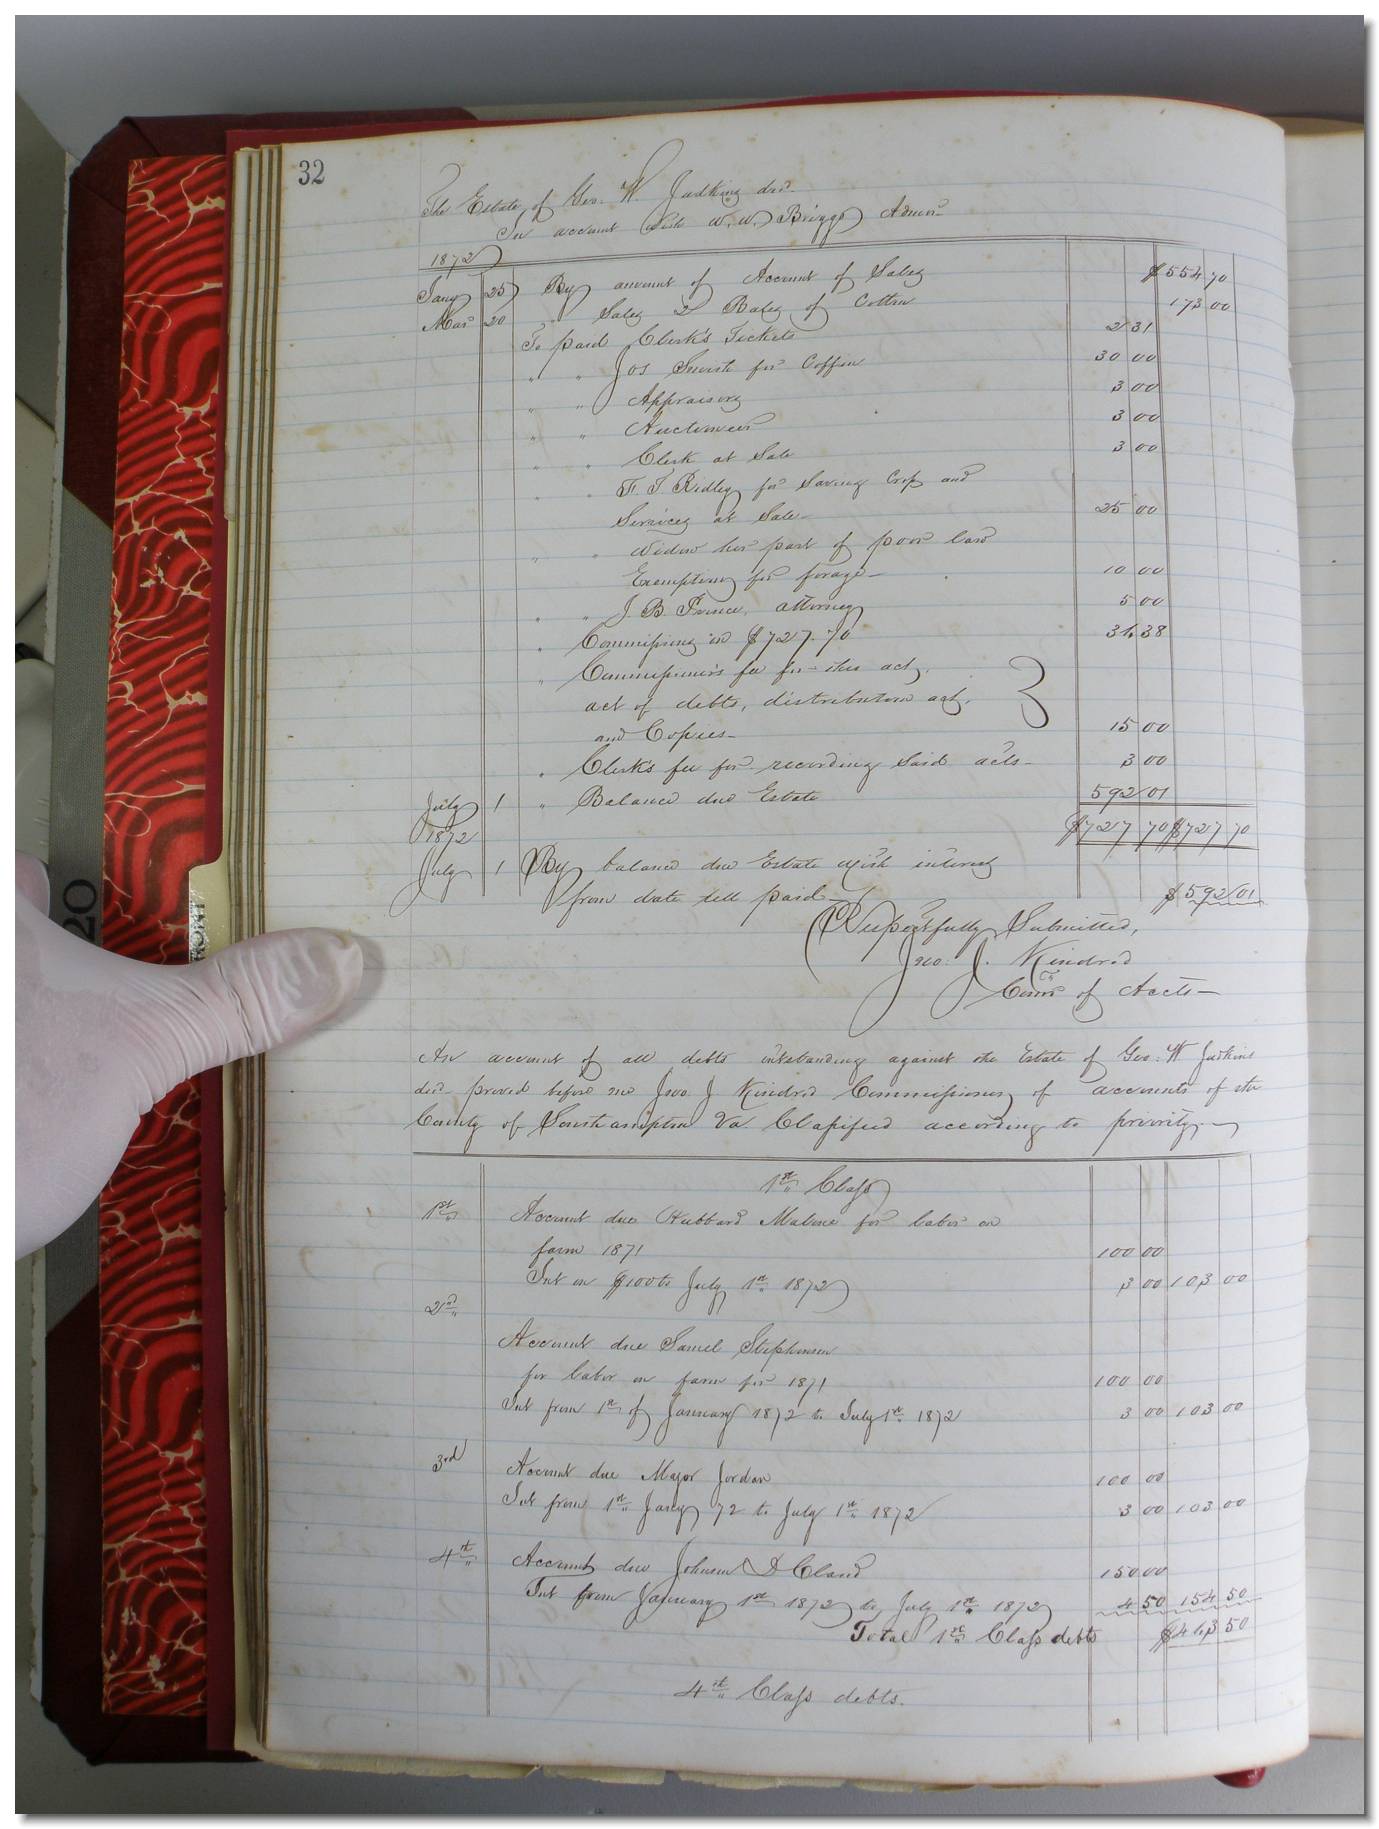 32
The Estate of Geo. W. Judkins decd.
In account with W. W. Briggs Admr.
1872
Jany 25 By amount of Account of Sales $554 70
Mar 20 " Sales 2 Bales of Cotton 173 00
To paid Clerk's Tickets 2 31
" " Jos Smith for Coffin 30 00
" " Appraisers 3 00
" " Auctioneer 3 00
" " Clerk at Sale 3 00
" " F. T. Ridley for Saving Crop and
Services at Sale 25 00
" " Widow her part of poor law
Exemption for forage 10 00
" " J. B. Prince, attorney 5 00
" Commissions on $727.70 36.38
" Commissioner's fee for this act,
act of debts, distribution act,
and Copies 15 00
" Clerk's fee for recording said acts 3 00
July 1 " Balance due Estate 592 01
1872 $727 70 $727 70
July 1 By balance due Estate with interest
from date till paid $592 01
Respectfully Submitted,
Jno. J. Kindred
Comr of Accts
An account of all debts outstanding against the Estate of Geo. W. Judkins
decd proved before me Jno. J Kindred Commissioner of accounts of the
County of Southampton Va. Classified according to priority.
1st Class
1st Account due Hubbard Malone for labor on
farm 1871 100 00
Int on $100 to July 1st 1872 3 00 103 00
2nd
Account due Samel Stephenson
for labor on farm for 1871 100 00
Int from 1st of January 1872 to July 1st 1872 3 00 103 00
3rd Account due Major Jordan 100 00
Int from 1st Jany 72 to July 1st 1872 3 00 103 00
4th Account due Johnson D Claud 150 00
Int from January 1st 1872 to July 1st 1872 4 50 154 50
Total 1st Class debts $463 50
4th Class debts.
20